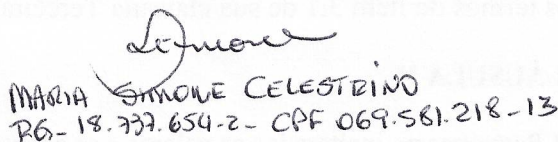 MARIA SIMONE CELESTRINO
RG- 18.737.654-2- CPF 069.581.218-13